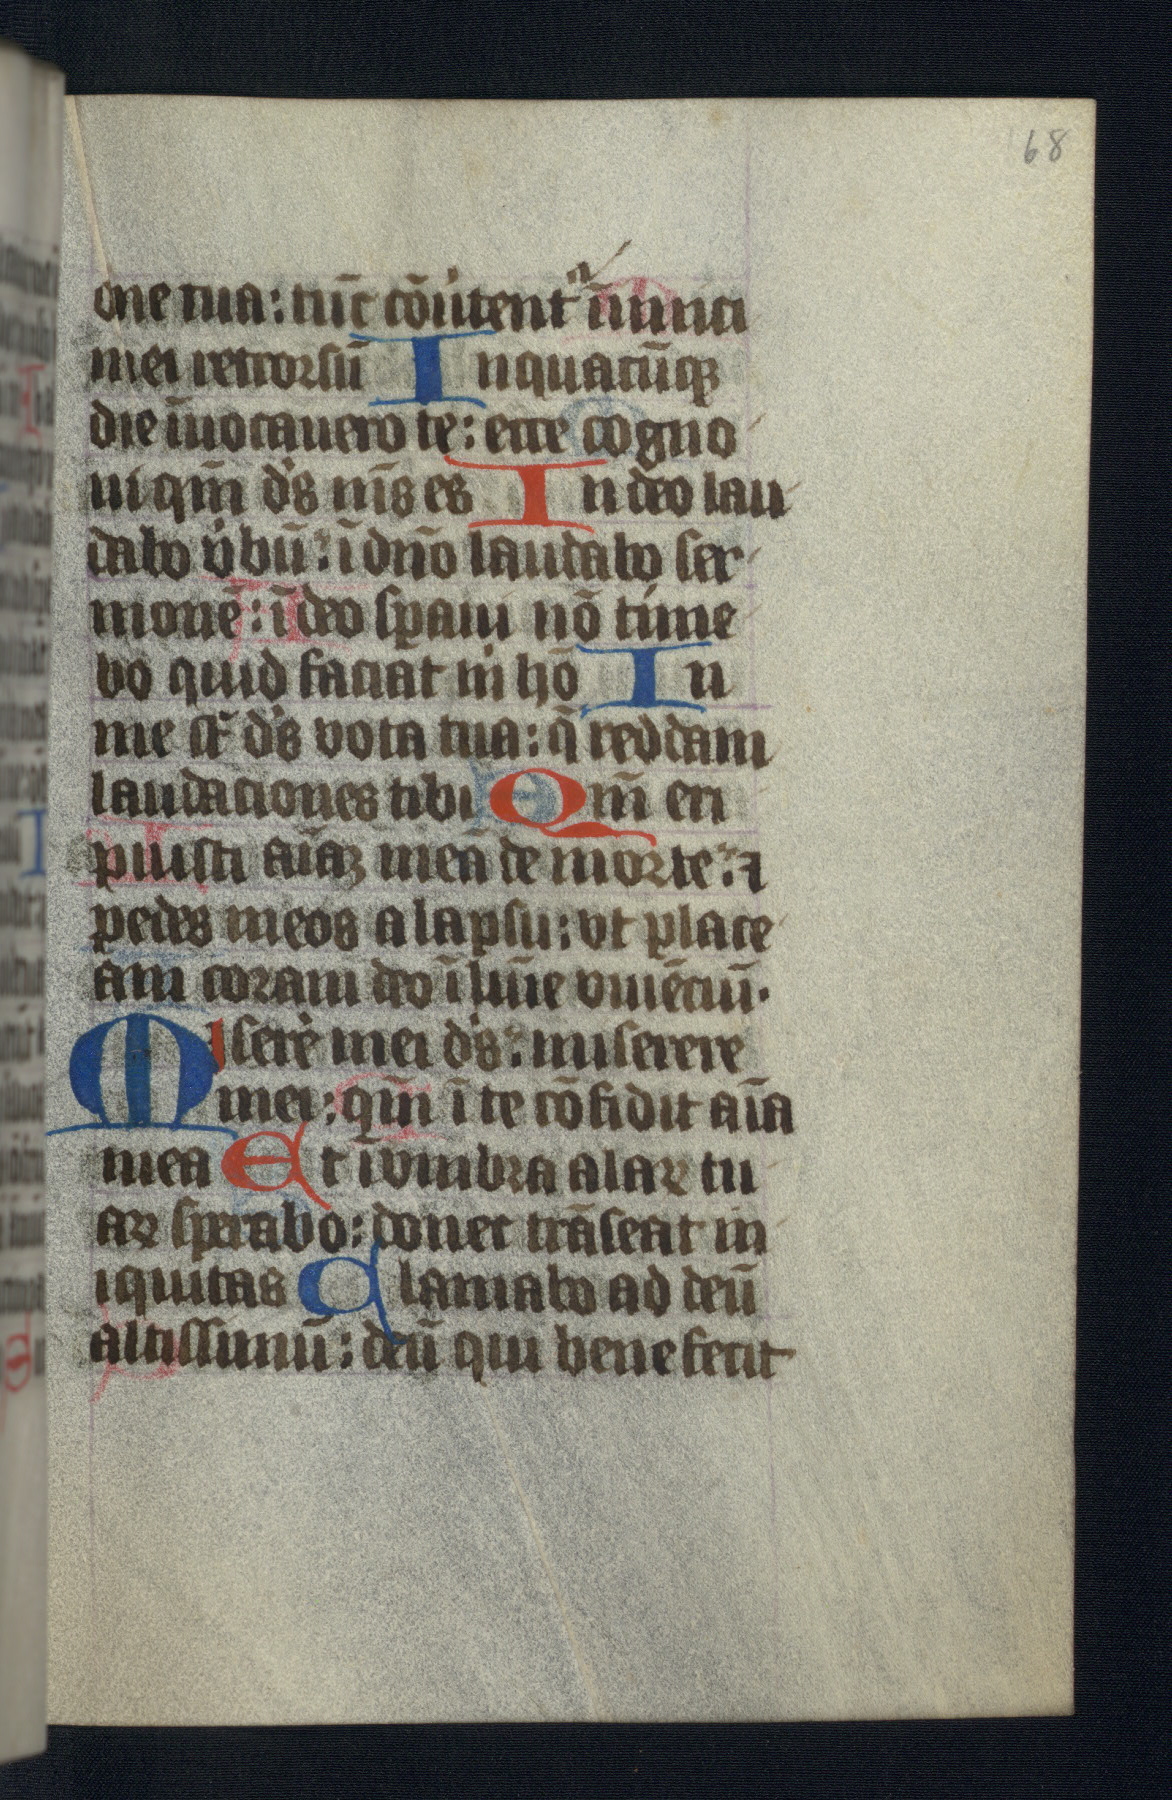 68
one tua: tūc cōu̇tentᵃ̄ īimici
mei retrorsū In quacūqꝫ
die īuocauero te: ecce cogno
ui qm̄ ds̄ mīs es In deo lau
dabo v̇bū: ī dn̄o laudabo ser
monē: ī deo sꝑaui nō time
bo quid faciat ṁ hō In
me sr̄ ds̄ vota tua: q̄ reddam
laudaciones tibi Qm̄ eri
puisti aīaꝫ mea de morte: ⁊
pedes meos a lapsu: vt place
am coram deo ī lūīe viuēciū.
Miserė mei ds̄: miserere
mei: qm̄ ī te cōfidit aīa
mea Et ī vmbra alaꝝ tu
aꝝ sperabo: donec trāseat in
iquitas Clamabo ad deū
altissimū: deū qui bene fecit